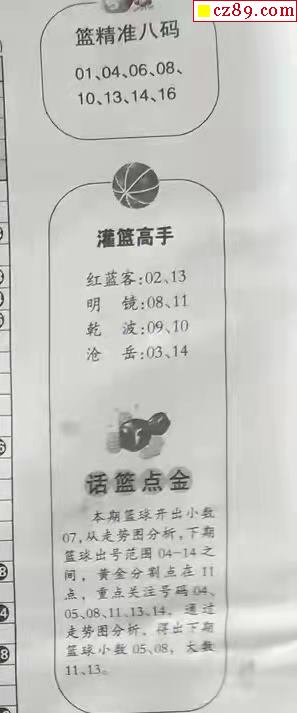 cz89.com
篮精准八码
01、04、06、08、
10、13、14、16
灌篮高手
红蓝客:02、13
明 镜:08、11
乾 波:09、10
沧 岳:03、14
话篮点金
本期篮球开出小数
07,从走势图分析,下期
篮球出号范围04-14之
间，黄金分割点在11
点，重点关注号码04、
05、08、11、13、14，通过
走势图分析，得出下期
篮球小数05、08，大数
11、13。